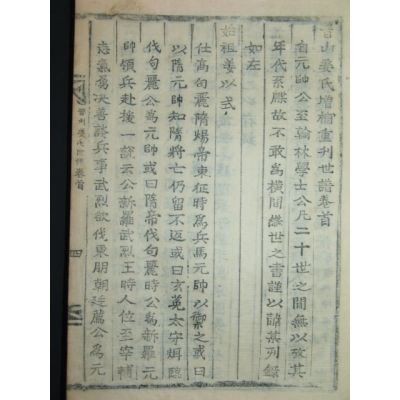 晋山姜氏增補重刊世譜卷首
自元帥公至翰林學士公凡二十世之間無以攷其
年代系牒故不敢爲橫間緣世之書謹以諸某列錄
如左
始祖姜以式
仕高句麗隋煬帝東征時爲兵馬元帥以禦之或曰
以隋元帥知隋將亡仍留不返或曰玄菟太守
伐句麗公爲元帥或曰隋帝伐句麗時公爲新羅元
帥領兵赴援一說云公新羅武烈王時人位至宰輔
志氣勇決善談兵事武烈欲伐東明朝廷薦公爲元
卷首
四